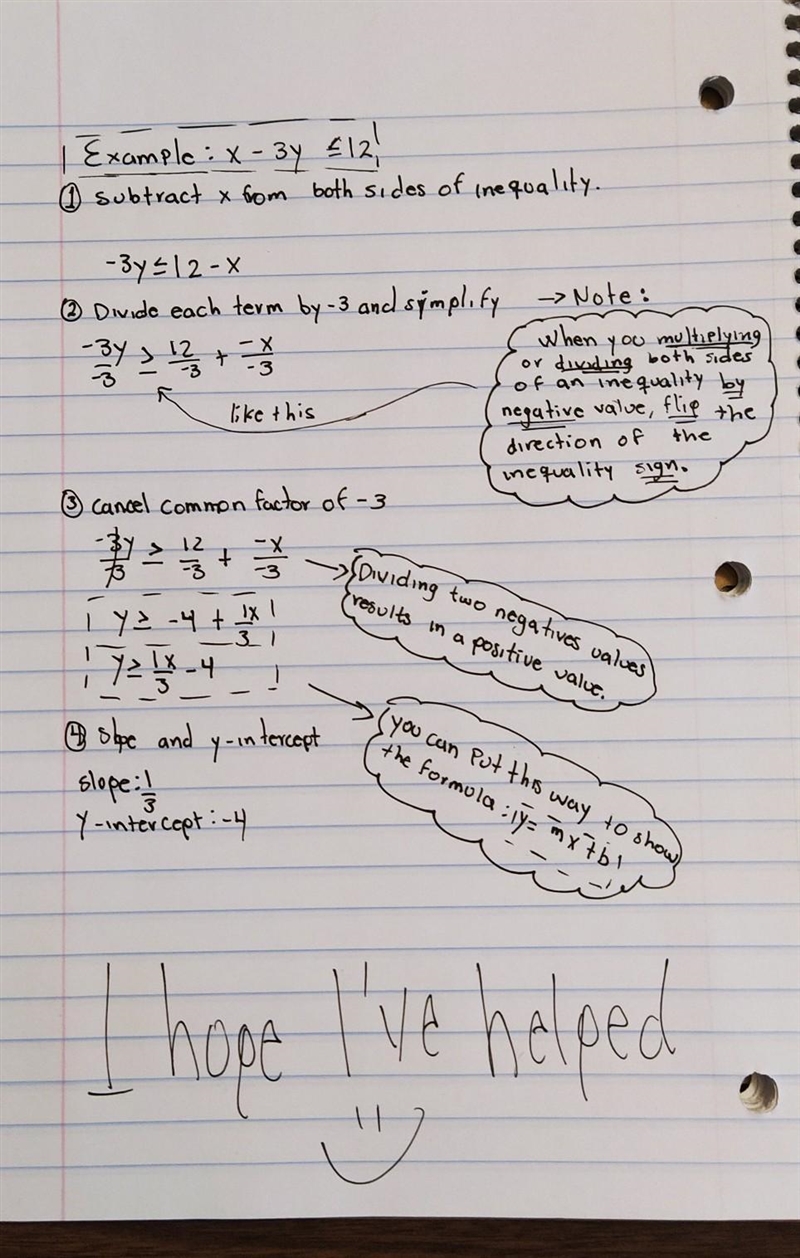 Example: x - 3y ≤ 12
① Subtract x from both sides of inequality.
-3y ≤ 12 - x
② Divide each term by -3 and simplify → Note:
-3y/-3 ≥ 12/-3 + -x/-3
like this
When you multiplying
or dividing both sides
of an inequality by
negative value, flip the
direction of the
inequality sign.
③ Cancel common factor of -3
-3y/-3 ≥ 12/-3 + -x/-3
Dividing two negatives values
results in a positive value.
y ≥ -4 + 1x/3
y ≥ 1x/3 - 4
you can put this way to show
the formula: y = mx + b
④ Slope and y-intercept
slope: 1/3
Y-intercept: -4
I hope I've helped